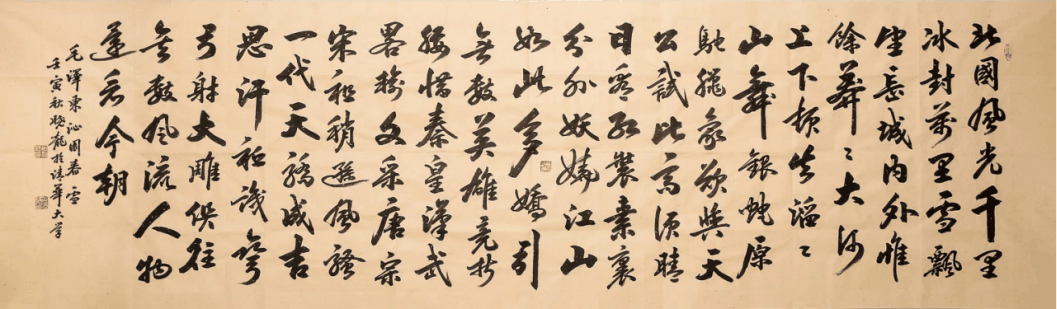 北國風光千里
冰封萬里雪飄
望長城内外惟
餘莽〻大河
上下頓失滔〻
山舞銀蛇原
馳臘象欲與天
公試比高須晴
日看紅裝素裹
分外妖嬈江山
如此多嬌引
無數英雄競折
腰惜秦皇漢武
畧輸文采唐宗
宋祖稍遜風騷
一代天驕成吉
思汗衹識彎
弓射大雕俱往
矣數風流人物
還看今朝
毛澤東沁園春雪
壬寅秋曉龍於清華大學